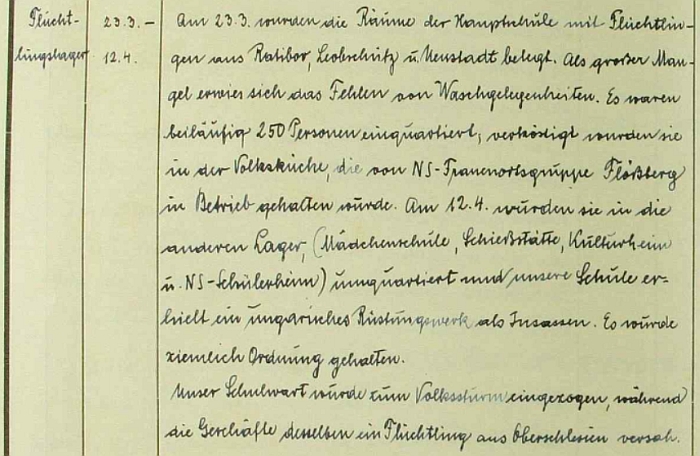 Flücht- 23.3.- Am 23.3. wurden die Räume der Hauptschule mit Flüchtlin-
lingslager 12.4. gen aus Ratibor, Leobschütz u. Neustadt belegt. Als großer Man-
gel erwies sich das Fehlen von Waschgelegenheiten. Es waren
beiläufig 250 Personen einquartiert, verköstigt wurden sie
in der Volksküche, die von NS-Frauenortsgruppe Flößberg
in Betrieb gehalten wurde. Am 12.4. wurden sie in die
anderen Lager, (Mädchenschule, Schießstätte, Kulturheim
u. NS-Schülerheim) umquartiert und unsere Schule er-
hielt ein ungarisches Rüstungswerk als Insassen. Es wurde
ziemlich Ordnung gehalten.
Unser Schulwart wurde zum Volkssturm eingezogen, während
die Geschäfte desselben ein Flüchtling aus Oberschlesien versah.